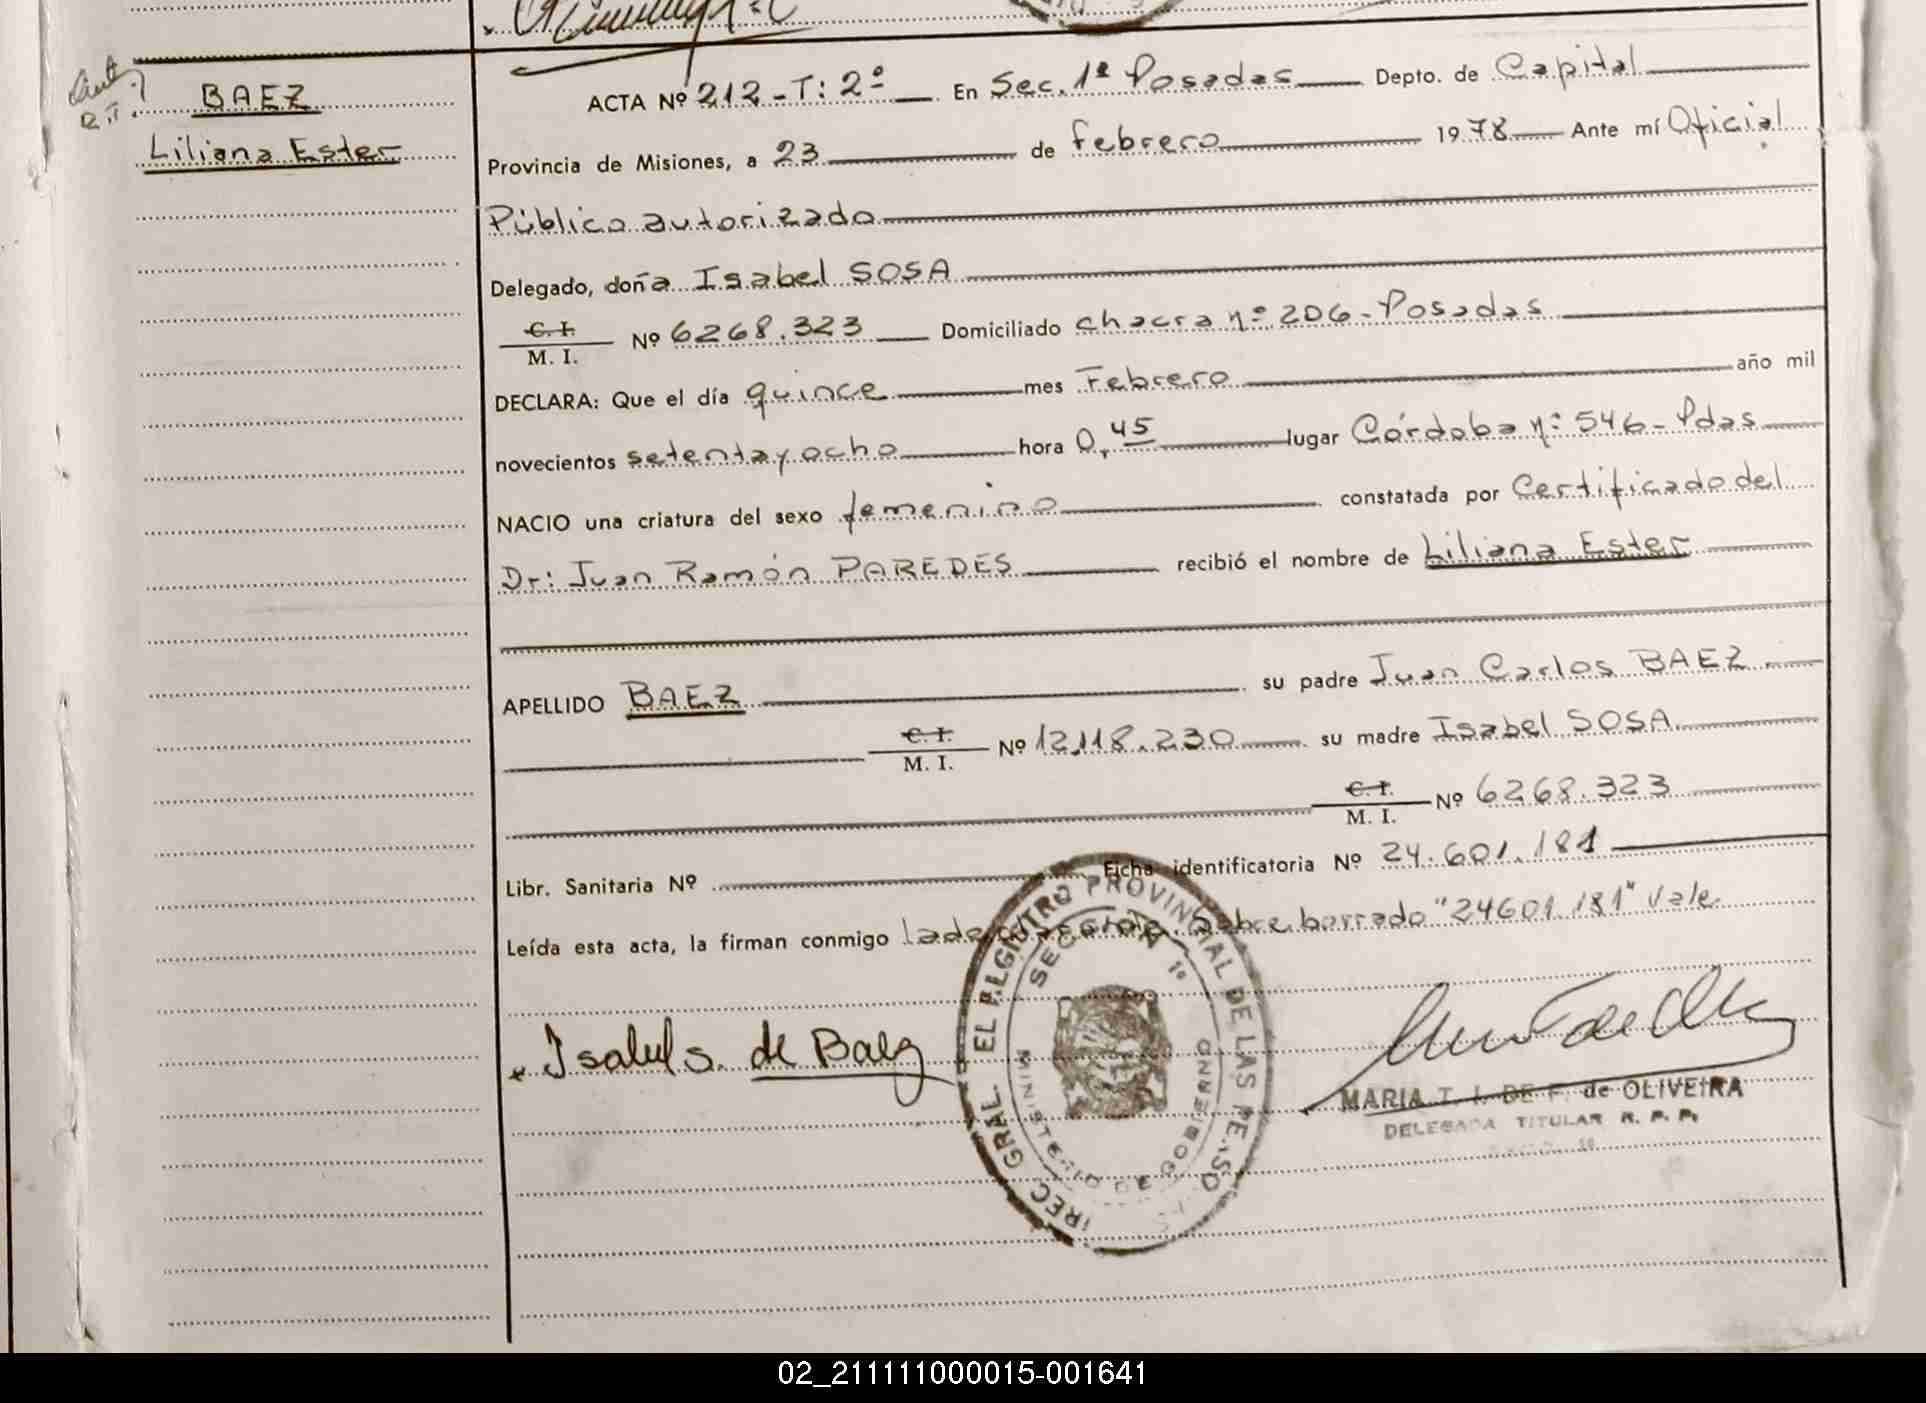 BAEZ
Liliana Ester
ACTA Nº 212-T: 2º En Sec. 1ª Posadas Depto. de Capital
Provincia de Misiones, a 23 de febrero 1978 Ante mí Oficial
Público autorizado
Delegado, doña Isabel SOSA
C. I.
M. I. Nº 6268.323 Domiciliado chacra nº 206 - Posadas
DECLARA: Que el día quince mes Febrero año mil
novecientos setenta y ocho hora 0,45 lugar Córdoba nº 546 - Pdas
NACIO una criatura del sexo femenino constatada por Certificado del
Dr: Juan Ramón PAREDES recibió el nombre de Liliana Ester
APELLIDO BAEZ su padre Juan Carlos BAEZ
C. I.
M. I. Nº 12.118.230 su madre Isabel SOSA
C. I.
M. I. Nº 6268.323
Libr. Sanitaria Nº Ficha identificatoria Nº 24.601.181
Leída esta acta, la firman conmigo la declarante. Sobre borrado "24601.181" Vale.
Isabel S. de Baez
MARIA T. I. DE F. de OLIVEIRA
DELEGADA TITULAR R. P. P.
GRAL. DEL REGISTRO PROVINCIAL DE LAS PERSO
SECCION 1º
MINISTERIO DE GOBIERNO
02_211111000015-001641